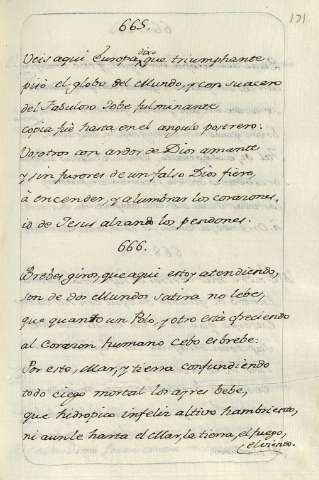 665.
131
Veis aqui Europa, dixo que triumphante
pisó el globo del Mundo, y con su acero
del Fabuloso Jobe fulminante
copia fué hasta en el angulo postrero:
Vosotros con ardor de Dios amante
y sin furores de un falso Dios fiero,
à encender, y alumbrar los corazones,
id de Jesus alzando los pendones.
666.
Brebes giros, que aqui estoy atendiendo,
son de dos Mundos satira no lebe,
que quanto un Polo, y otro está ofreciendo
al Corazon humano cebo es brebe:
Por esto, Mar, y tierra confundiendo
todo ciego mortal los ayres bebe,
que hidropico infeliz altivo hambriento,
ni aun le harta el Mar, la tierra, el fuego,
el viento.